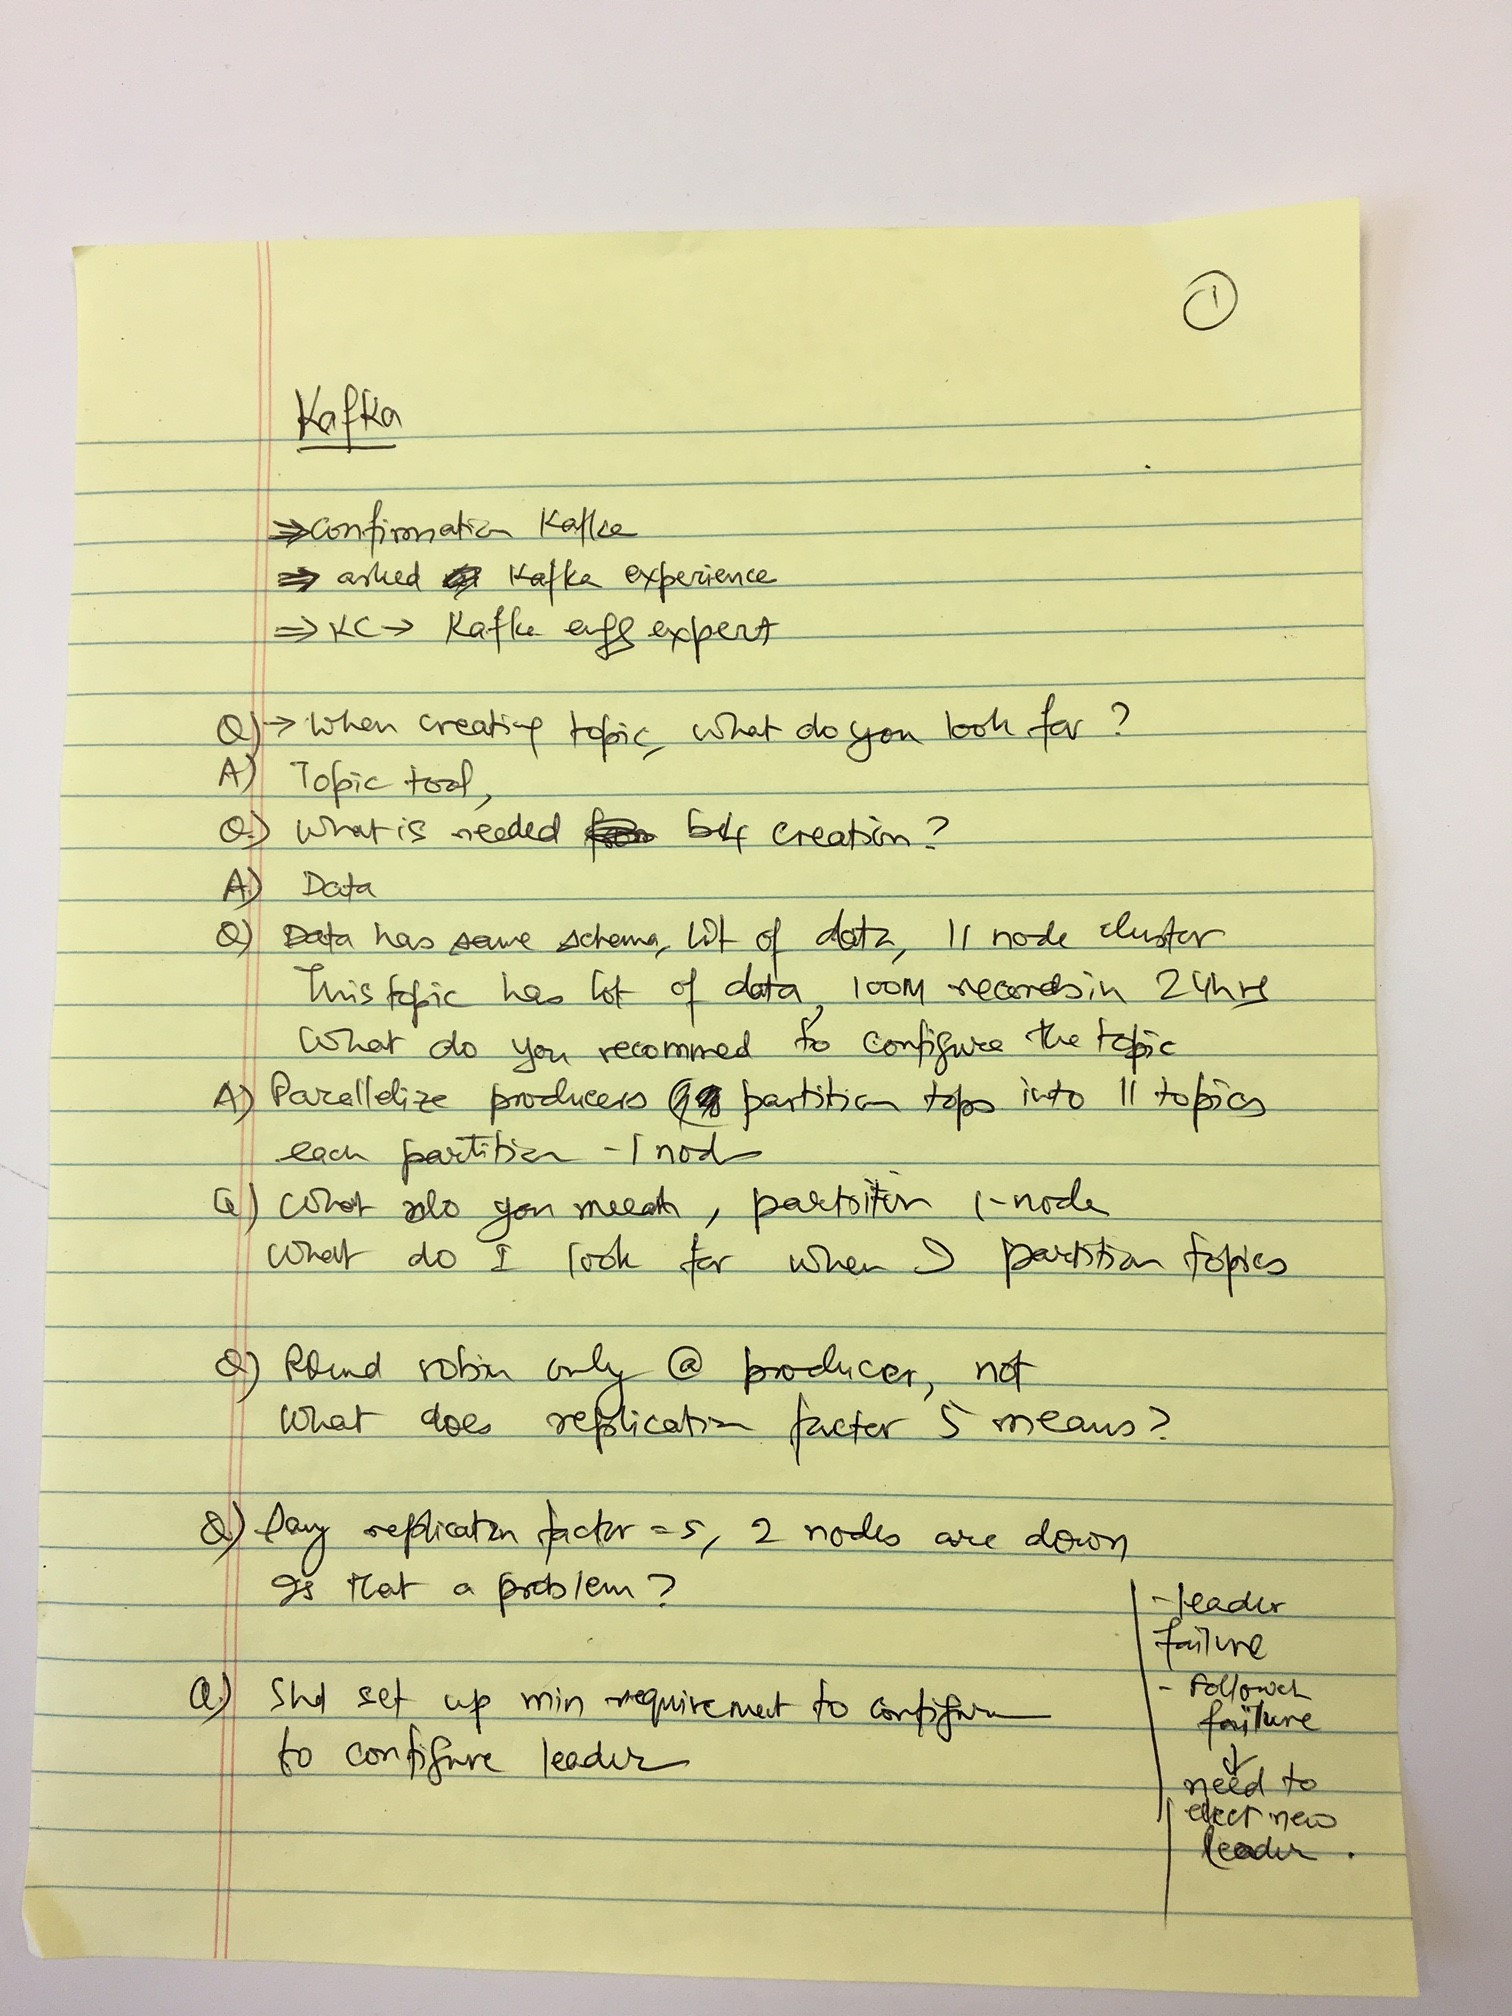 1
Kafka
⇒ confirmation Kafka
⇒ asked Kafka experience
⇒ KC → Kafka expert
Q) → When creating topic, what do you look for?
A) Topic tool,
Q) What is needed b4 creation?
A) Data
Q) Data has same schema, lot of data, 11 node cluster
This topic has lot of data, 100M records in 24hrs
What do you recommed to configure the topic
A) Parallelize producers partition tops into 11 topics
each partition - 1 node
Q) What do you mean, partoition 1-node
What do I look for when I partition topics
Q) Round robin only @ producer, not
What does replication factor 5 means?
Q) Say replication factor = 5, 2 nodes are down
Is that a problem?
Q) Shd set up min requirement to configure
to configure leader
- leader
failure
- Follower
failure
↓
need to
elect new
leader.